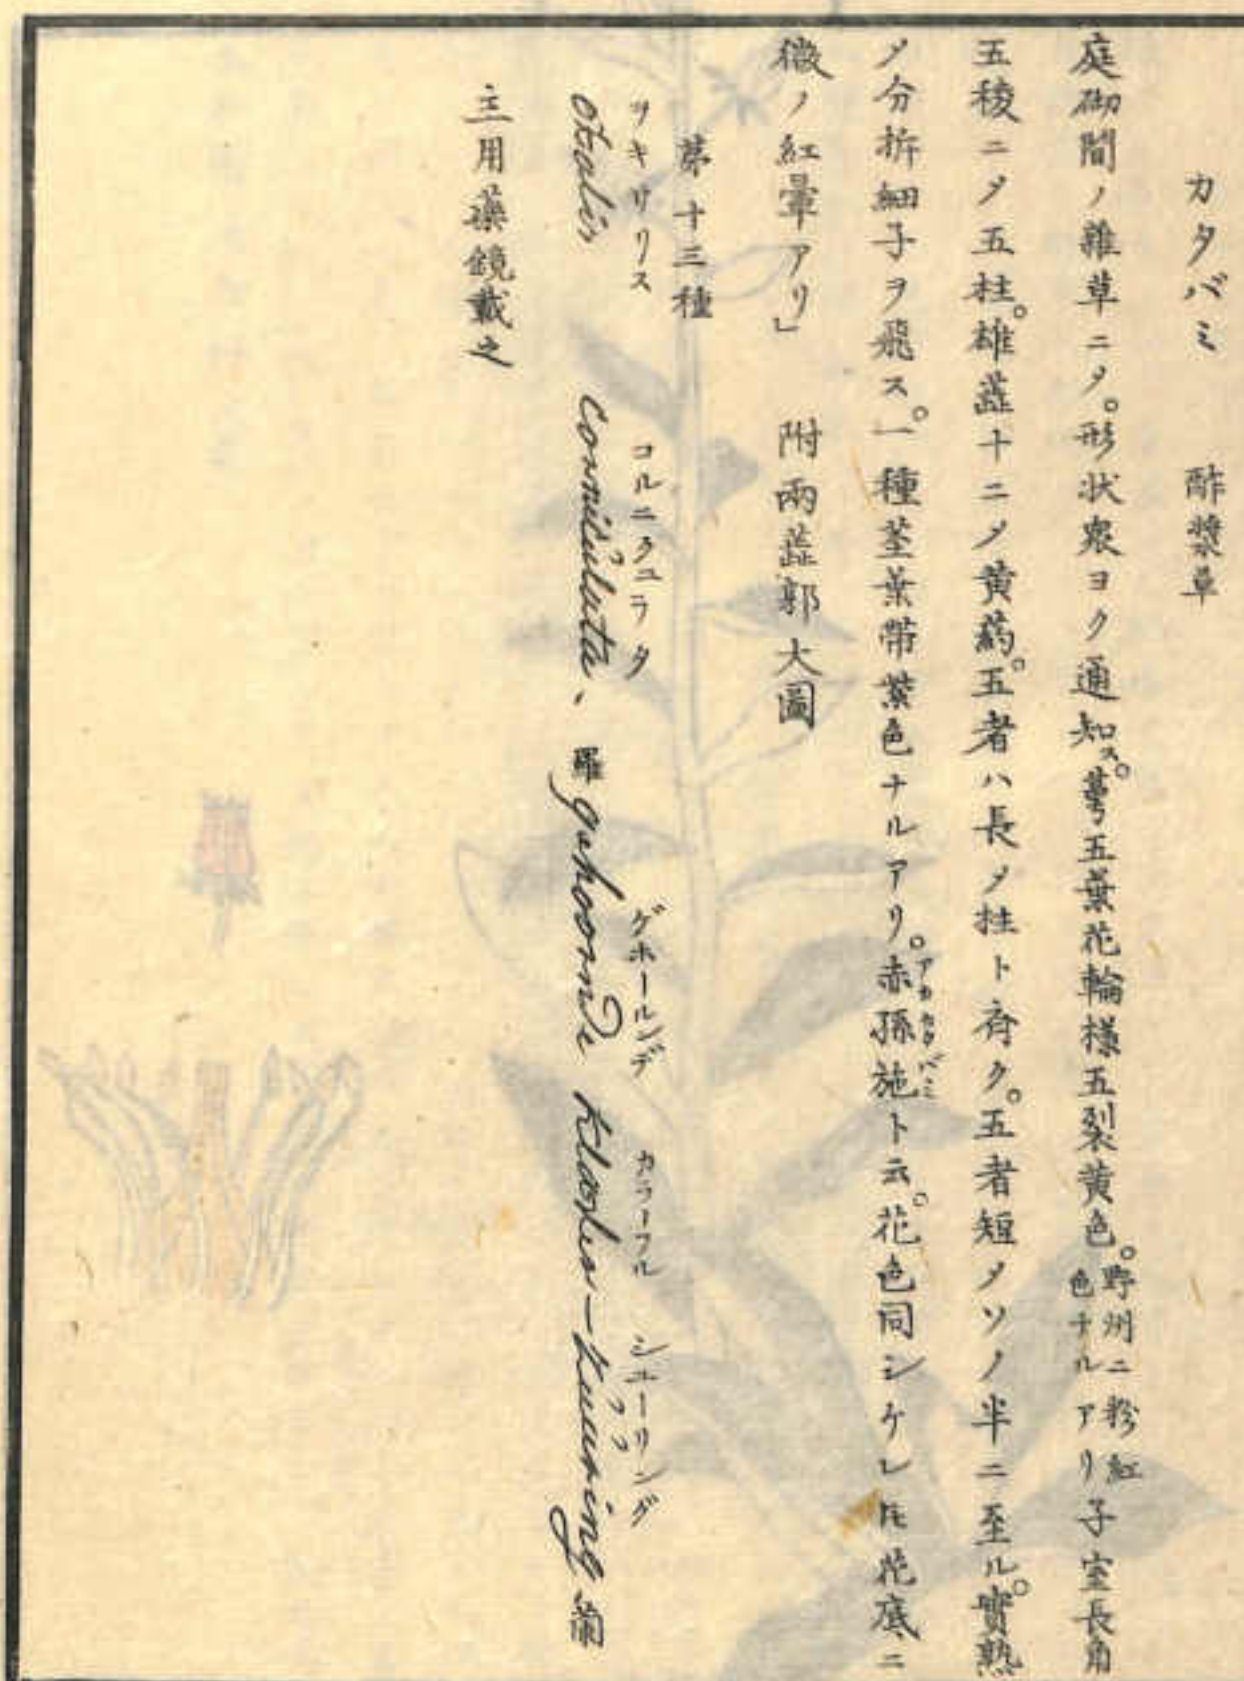 カタバミ 酢漿草
庭砌間ノ雜草ニ〆。形状衆ヨク通知ス。萼五葉花輪様五裂黄色。野州ニ粉紅色ナルアリ子室長角
五稜ニ〆五柱。雄蕋十ニ〆黄葯。五者ハ長〆柱ト齊ク。五者短〆ソノ半ニ至ル。實熟
〆分拆細子ヲ飛ス。一種莖葉帶紫色ナルアリ。赤孫施ト云。花色同シケレ𪜈花底ニ
アカカタバミ
微ノ紅暈アリ」 附兩蕋郭大圖
第十三種
ヲキサリス コルニクユラタ ゲホールンデ カラーフル シューリング
oxalis corniculata、羅 gehoornde klaver-zuuring 蘭
主用藥鏡載之